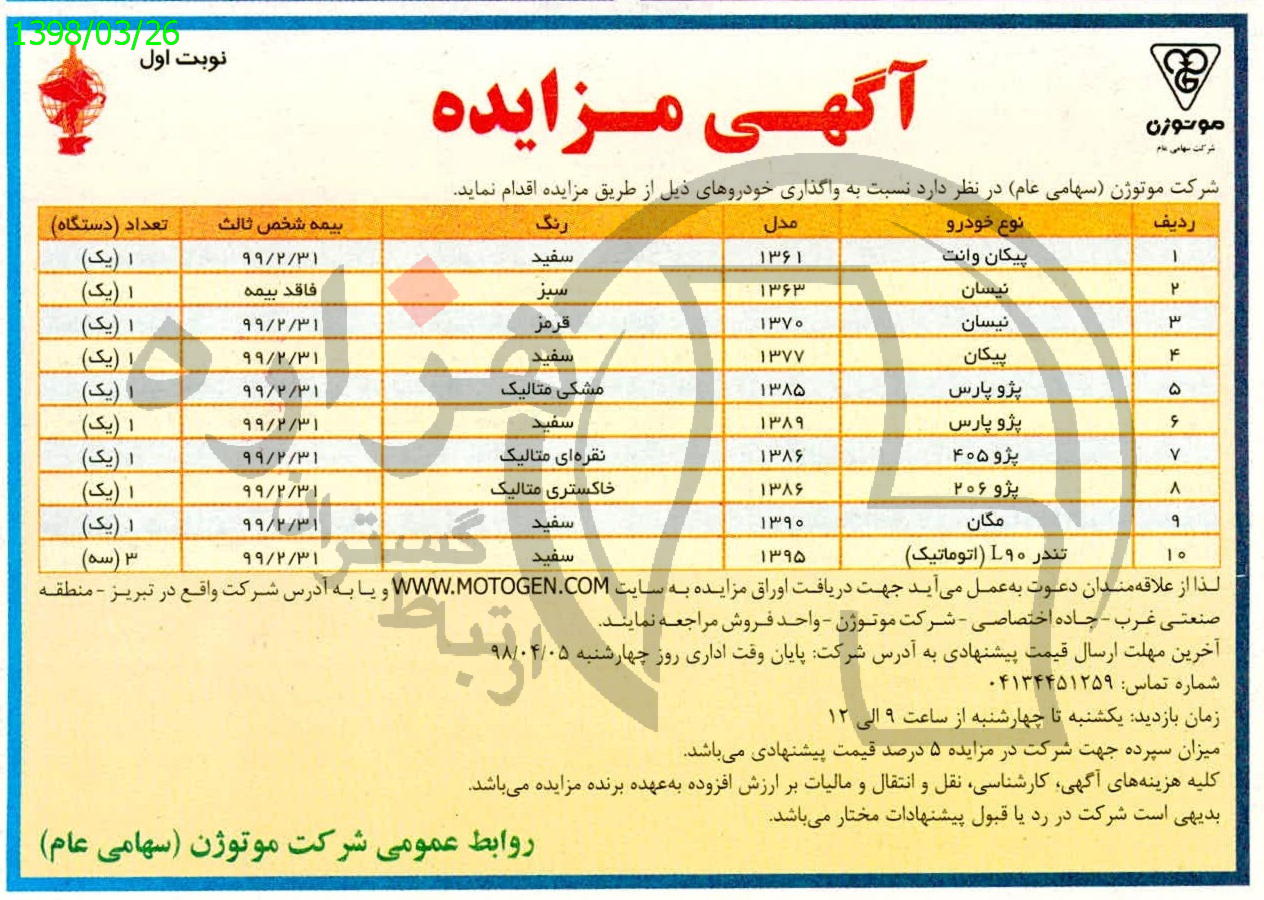 1398/03/26
نوبت اول
موتوژن
شرکت سهامی عام
آگهی مزایده
شرکت موتوژن (سهامی عام) در نظر دارد نسبت به واگذاری خودروهای ذیل از طریق مزایده اقدام نماید.
ردیف نوع خودرو مدل رنگ بیمه شخص ثالث تعداد (دستگاه)
۱ پیکان وانت ۱۳۶۱ سفید ۹۹/۲/۳۱ ۱ (یک)
۲ نیسان ۱۳۶۳ سبز فاقد بیمه ۱ (یک)
۳ نیسان ۱۳۷۰ قرمز ۹۹/۲/۳۱ ۱ (یک)
۴ پیکان ۱۳۷۷ سفید ۹۹/۲/۳۱ ۱ (یک)
۵ پژو پارس ۱۳۸۵ مشکی متالیک ۹۹/۲/۳۱ ۱ (یک)
۶ پژو پارس ۱۳۸۹ سفید ۹۹/۲/۳۱ ۱ (یک)
۷ پژو ۴۰۵ ۱۳۸۶ نقره‌ای متالیک ۹۹/۲/۳۱ ۱ (یک)
۸ پژو ۲۰۶ ۱۳۸۶ خاکستری متالیک ۹۹/۲/۳۱ ۱ (یک)
۹ مگان ۱۳۹۰ سفید ۹۹/۲/۳۱ ۱ (یک)
۱۰ تندر L۹۰ (اتوماتیک) ۱۳۹۵ سفید ۹۹/۲/۳۱ ۳ (سه)
لذا از علاقه‌مندان دعوت به‌عمل می‌آید جهت دریافت اوراق مزایده به سایت WWW.MOTOGEN.COM و یا به آدرس شرکت واقع در تبریز - منطقه
صنعتی غرب - جاده اختصاصی - شرکت موتوژن - واحد فروش مراجعه نمایند.
آخرین مهلت ارسال قیمت پیشنهادی به آدرس شرکت: پایان وقت اداری روز چهارشنبه ۹۸/۰۴/۰۵
شماره تماس: ۰۴۱۳۴۴۵۱۲۵۹
زمان بازدید: یکشنبه تا چهارشنبه از ساعت ۹ الی ۱۲
میزان سپرده جهت شرکت در مزایده ۵ درصد قیمت پیشنهادی می‌باشد.
کلیه هزینه‌های آگهی، کارشناسی، نقل و انتقال و مالیات بر ارزش افزوده به‌عهده برنده مزایده می‌باشد.
بدیهی است شرکت در رد یا قبول پیشنهادات مختار می‌باشد.
روابط عمومی شرکت موتوژن (سهامی عام)
هزاره
گستران
ارتباط